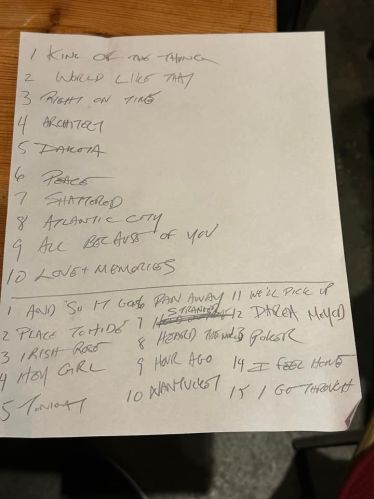 1 KING OF THE THING
2 WORLD LIKE THAT
3 RIGHT ON TIME
4 ARCHITECT
5 DAKOTA
6 PEACE
7 SHATTERED
8 ATLANTIC CITY
9 ALL BECAUSE OF YOU
10 LOVE + MEMORIES
1 AND SO IT GOES
2 PLACE TO HIDE
3 IRISH ROSE
4 HEY GIRL
5 TONIGHT
6 RAN AWAY
7 STRANGER
8 HEARD THE WORLD
9 HOUR AGO
10 WANTUCKET
11 WE'LL PICK UP
12 DAREH MEYOD
13 POKER
14 I FEEL HOME
15 I GO THROUGH